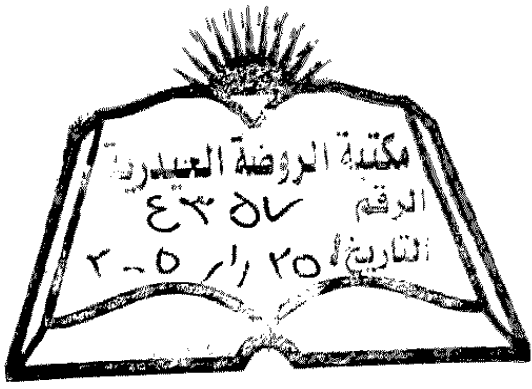 مكتبة الروضة الحيدرية
الرقم ٤٣٥٧
التاريخ